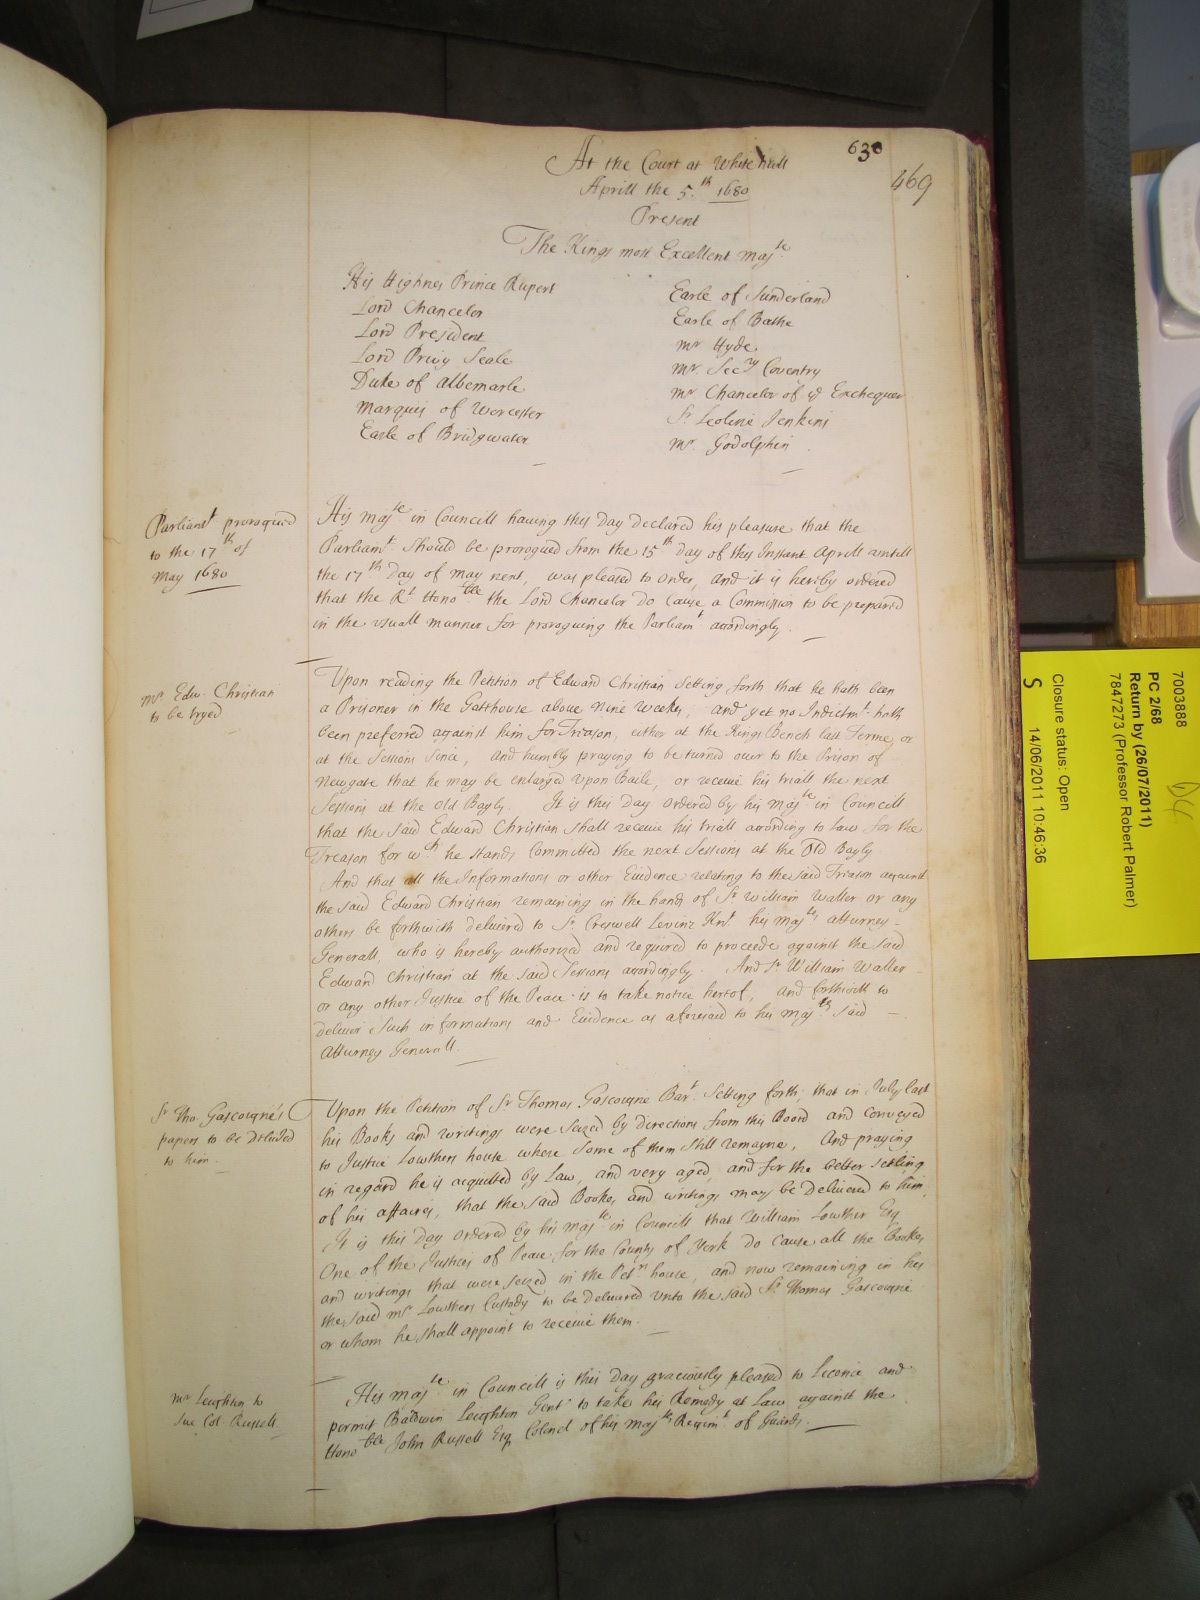 630
469
At the Court at Whitehall
Aprill the 5.th 1680
Present
The Kings most Excellent Majte.
His Highnes Prince Rupert
Lord Chancelor
Lord President
Lord Privy Seale
Duke of Albemarle
Marquis of Worcester
Earle of Bridgwater
Earle of Sunderland
Earle of Bathe
Mr Hyde.
Mr. Secry Coventry
Mr Chancelor of ye Exchequer
Sr. Leoline Jenkins
Mr. Godolphin.
Parliamt prorogued
to the 17th of
May 1680
His Majte in Councill having this Day Declared his pleasure that the
Parliamt. should be prorogued from the 15th Day of this Instant Aprill untill
the 17th Day of May next, was pleased to Order, and it is hereby ordered
that the Rt. Honoble the Lord Chancelor Do Cause a Commission to be prepared
in the usuall manner for proroguing the Parliamt accordingly.
Mr. Edw. Christian
to be tryed
Upon reading the Petition of Edward Christian setting forth that he hath been
a Prisoner in the Gatehouse above Nine Weekes, and yet no Indictmt. hath
been preferred against him for Treason, either at the Kings Bench last Terme, or
at the Sessions since, and humbly praying to be turned over to the Prison of
Newgate that he may be enlarged upon Baile, or receive his triall the next
Sessions at the Old Bayly. It is this Day Ordered by his Majte in Councill
that the said Edward Christian shall receive his triall according to Law for the
Treason for wch he stands Committed the next Sessions at the Old Bayly
And that all the Informations or other Evidence relating to the said Treason against
the said Edward Christian remaining in the hands of Sr. William Waller or any
others be forthwith delivered to Sr. Creswell Levinz Knt. his Majts Attorney
Generall, who is hereby authorized and required to proceede against the said
Edward Christian at the said Sessions accordingly. And Sr William Waller
or any other Justice of the Peace is to take notice hereof, and forthwith to
deliver such informations and Evidence as aforesaid to his Majts said
Attorney Generall.
Sr Tho. Gascoigne's
papers to be Delivred
to him.
Upon the Petition of Sr Thomas Gascoigne Bart. Setting forth, that in July last
his Books and writings were seized by directions from this Board and conveyed
to Justice Lowthers house where some of them still remayne, And praying
in regard he is acquitted by Law, and very aged, and for the better setling
of his affaires, that the said Bookes and writings may be Delivered to him,
It is this day Ordered by his Majte in Councill that William Lowther Esq
One of the Justices of Peace for the County of York do cause all the Bookes
and writings that were seized in the Petrs house, and now remaining in his
the said Mr Lowthers Custody to be Delivered unto the said Sr. Thomas Gascoigne
or whom he shall appoint to receive them.
Mr Leighton to
Sue Col. Russell.
His Majte in Councill is this Day graciously pleased to Licence and
permit Baldwin Leighton Gent. to take his Remedy at Law against the
Honoble John Russell Esq Colonel of his Majts Regimt. of Guards.
7003888
PC 2/68
Return by (26/07/2011)
7847273 (Professor Robert Palmer)
Closure status: Open
S 14/06/2011 10:46:36